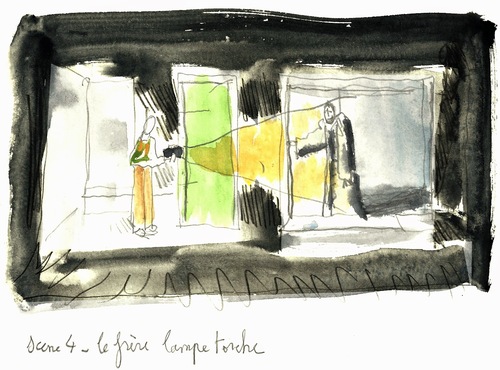 Scene 4 - le frère lampe torche